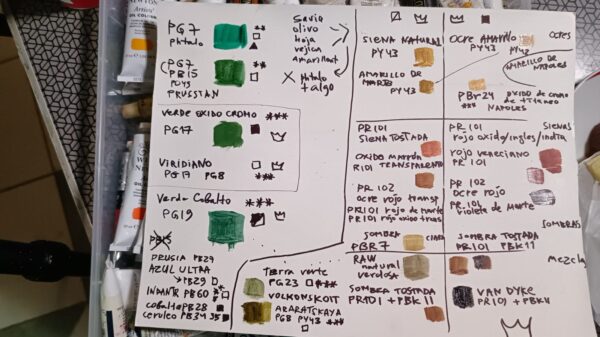 PG7
phtalo
***
Savia
olivo
hoja
vejica
Amarillout
PG7
PB15
PO43
PRUSSIAN
**
X phtalo
+ algo
VERDE OXIDO CROMO ***
PG17
VIRIDIANO
PG17 PG8 *
Verde Cobalto ***
PG19
PB15
PRUSIA PB27
AZUL ULTRA
PB29
INDANTR PB60
cobalto PB28
ceruleo PB34 35
Tierra verte
PG23 ***
VOLKONSKOIT
ARARATSKAYA
PG8 PY43 ***
SIENA NATURAL
PY43
AMARILLO DE
MARTE
PY43
PR101
SIENA TOSTADA
OXIDO MARRON
R101 TRANSPARENTE
PR 102
ocre rojo transp
PR101 rojo de marte
PR101 rojo oxido trans
SOMBRA
PBR7
CLARA
RAW
natural
verdosa
SOMBRA TOSTADA
PR101 + PBK11
OCRE AMARILLO
PY43
PY42
OCRES
AMARILLO DE
NAPOLES
PBr24
OXIDO de cromo
de + titanio
NAPOLES
PR 101
rojo oxido/ingles/india
SIENAS
rojo veneciano
PR 101
PR 102
ocre rojo
PR 101
violeta de Marte
SOMBRAS
SOMBRA TOSTADA
PR101 PBK11
Mezcla
VAN DYKE
PR101 + PBK11